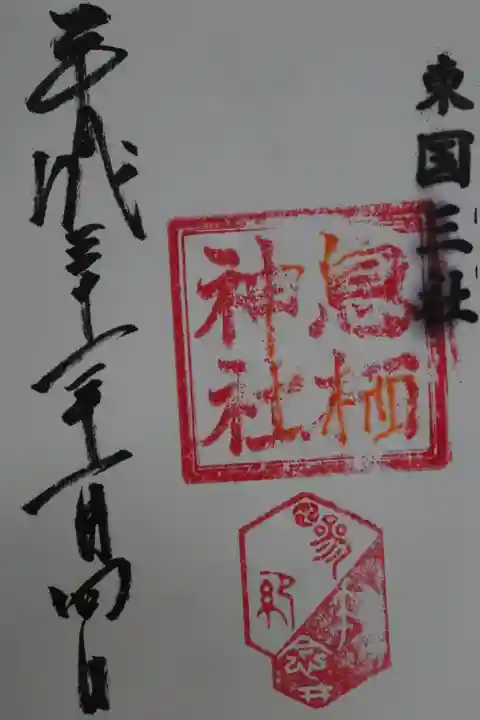 東国三社
息栖
神社
平成三十一年一月四日